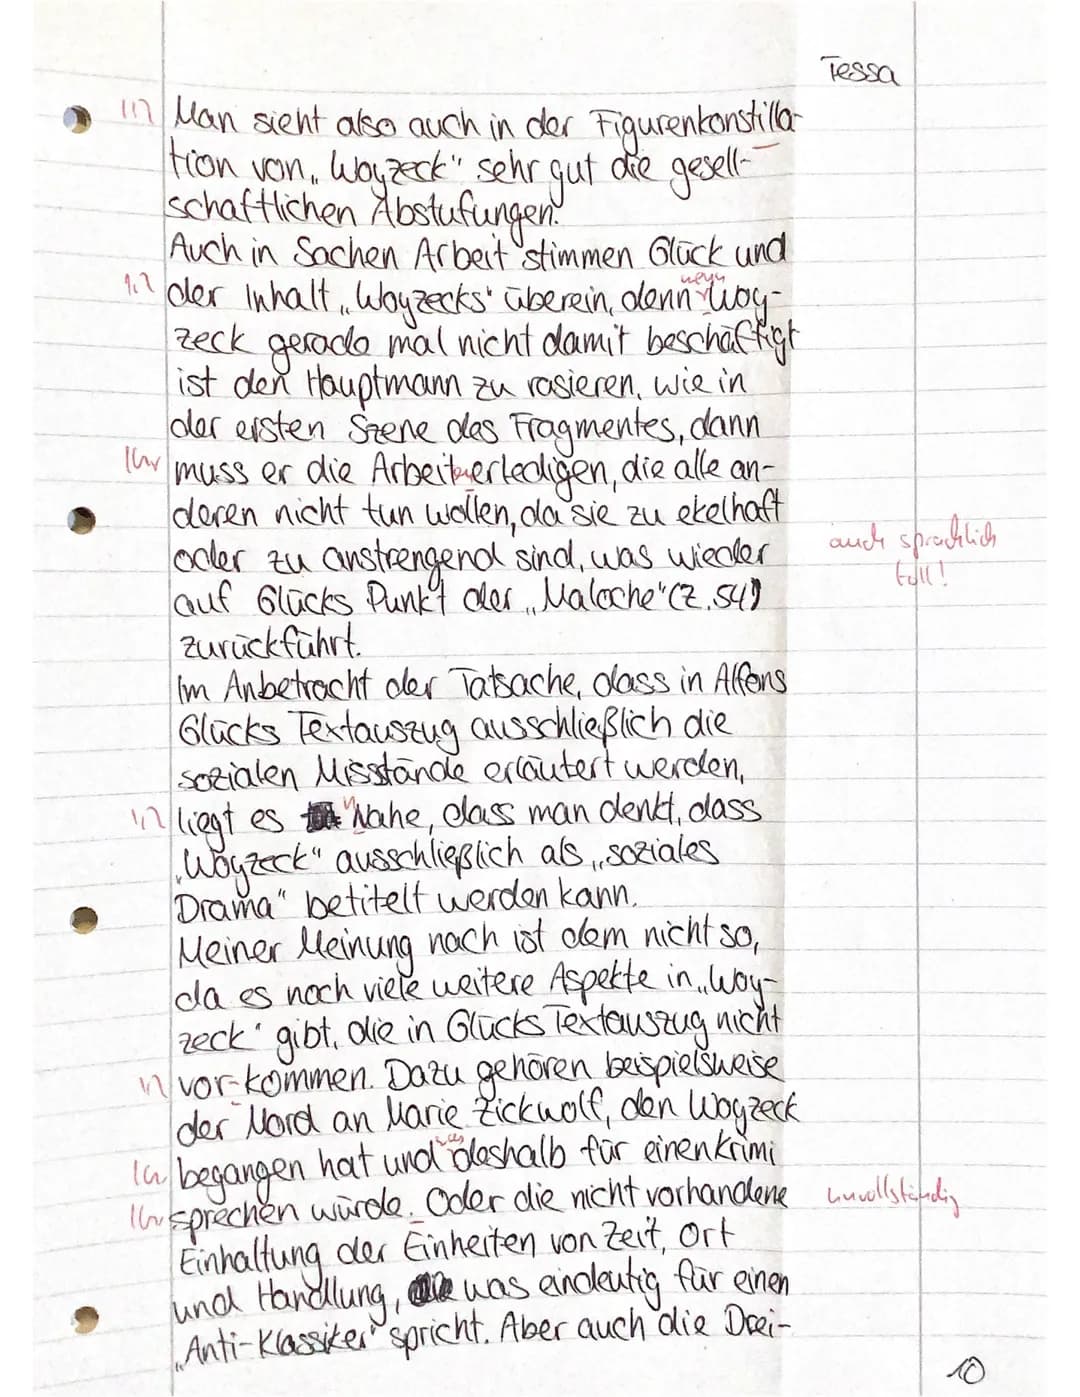 Tessa
Man sieht also auch in der Figurenkonstilla-
tion von „Woyzeck" sehr gut die gesell-
schaftlichen Abstufungen.
Auch in Sachen Arbeit stimmen Glück und
wenn
der Inhalt „Woyzecks" überein, denn Woy-
zeck gerade mal nicht damit beschäftigt
ist den Hauptmann zu rasieren, wie in
der ersten Szene des Fragmentes, dann
muss er die Arbeit erledigen, die alle an-
deren nicht tun wollen, da sie zu ekelhaft
oder zu anstrengend sind, was wieder
auch sprachlich
toll!
auf Glücks Punkt der „Maloche" (Z.54)
zurückführt.
Im Anbetracht der Tatsache, dass in Alfons
Glücks Textauszug ausschließlich die
sozialen Misstände erläutert werden,
liegt es Nahe, dass man denkt, dass
„Woyzeck" ausschließlich als „soziales
Drama" betitelt werden kann.
Meiner Meinung nach ist dem nicht so,
da es noch viele weitere Aspekte in „Woy-
zeck" gibt, die in Glücks Textauszug nicht
vor-kommen. Dazu gehören beispielsweise
der Mord an Marie Zickwolf, den Woyzeck
begangen hat und deshalb für einen Krimi
sprechen würde. Oder die nicht vorhandene
unvollständig
Einhaltung der Einheiten von Zeit, Ort
und Handlung, was eindeutig für einen
„Anti-Klassiker" spricht. Aber auch die Drei-
10